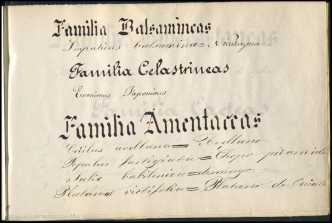 Familia Balsamineas
Impatiens balsamina =
Familia Celastrineas
Evonimus Japonicus
Familia Amentaceas
avellana = Avellano
Populus fastigiata = Chopo piramidal
babilonica =
Platanus = Platano de